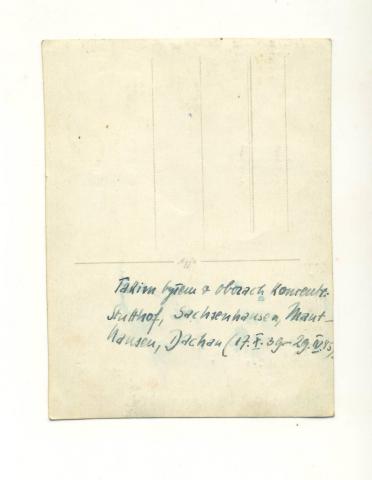 Takim byłem w obozach koncentr.
Stutthof, Sachsenhausen, Maut-
hausen, Dachau (17.X.39–29.IV.45).